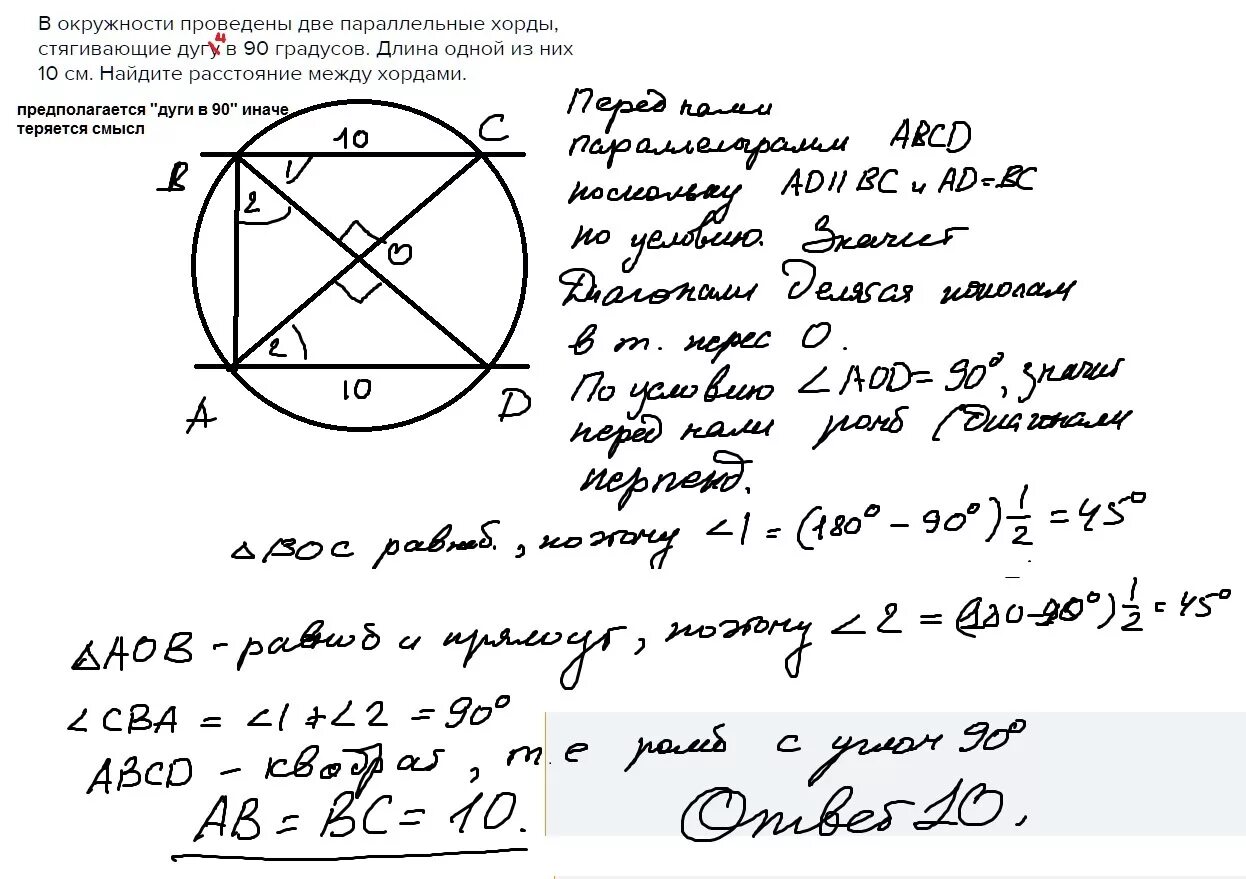 В окружности проведены две параллельные хорды,
стягивающие дугу и в 90 градусов. Длина одной из них
10 см. Найдите расстояние между хордами.
предполагается "дуги в 90" иначе
теряется смысл
10
B
C
1
2
O
2
10
A
D
Перед нами
параллелограмм ABCD
поскольку AD || BC и AD=BC
по условию. Значит
Диагонали делятся пополам
в т. перес O.
По условию ∠AOD=90°, значит
перед нами ромб (Диагонали
перпенд.
△BOC равноб., поэтому ∠1 = (180° - 90°) 1/2 = 45°
△AOB - равноб и прямоуг, поэтому ∠2 = (180-90°) 1/2 = 45°
∠CBA = ∠1 + ∠2 = 90°
ABCD - квадрат, т.е ромб с углом 90°
AB = BC = 10.
Ответ 10.